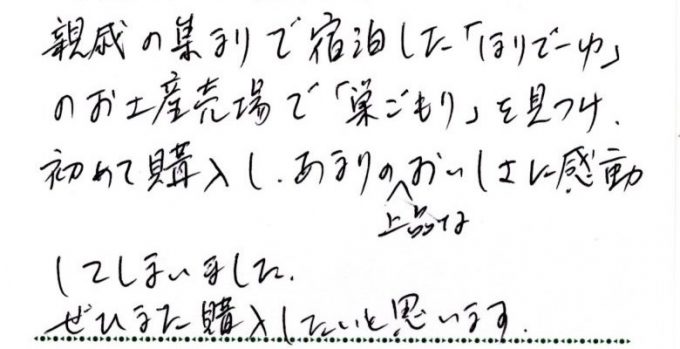 親戚の集まりで宿泊した「ほりでーゆ」
のお土産売場で「巣ごもり」を見つけ、
初めて購入し、あまりのおいしさに感動
上品な
してしまいました。
ぜひまた購入したいと思います。